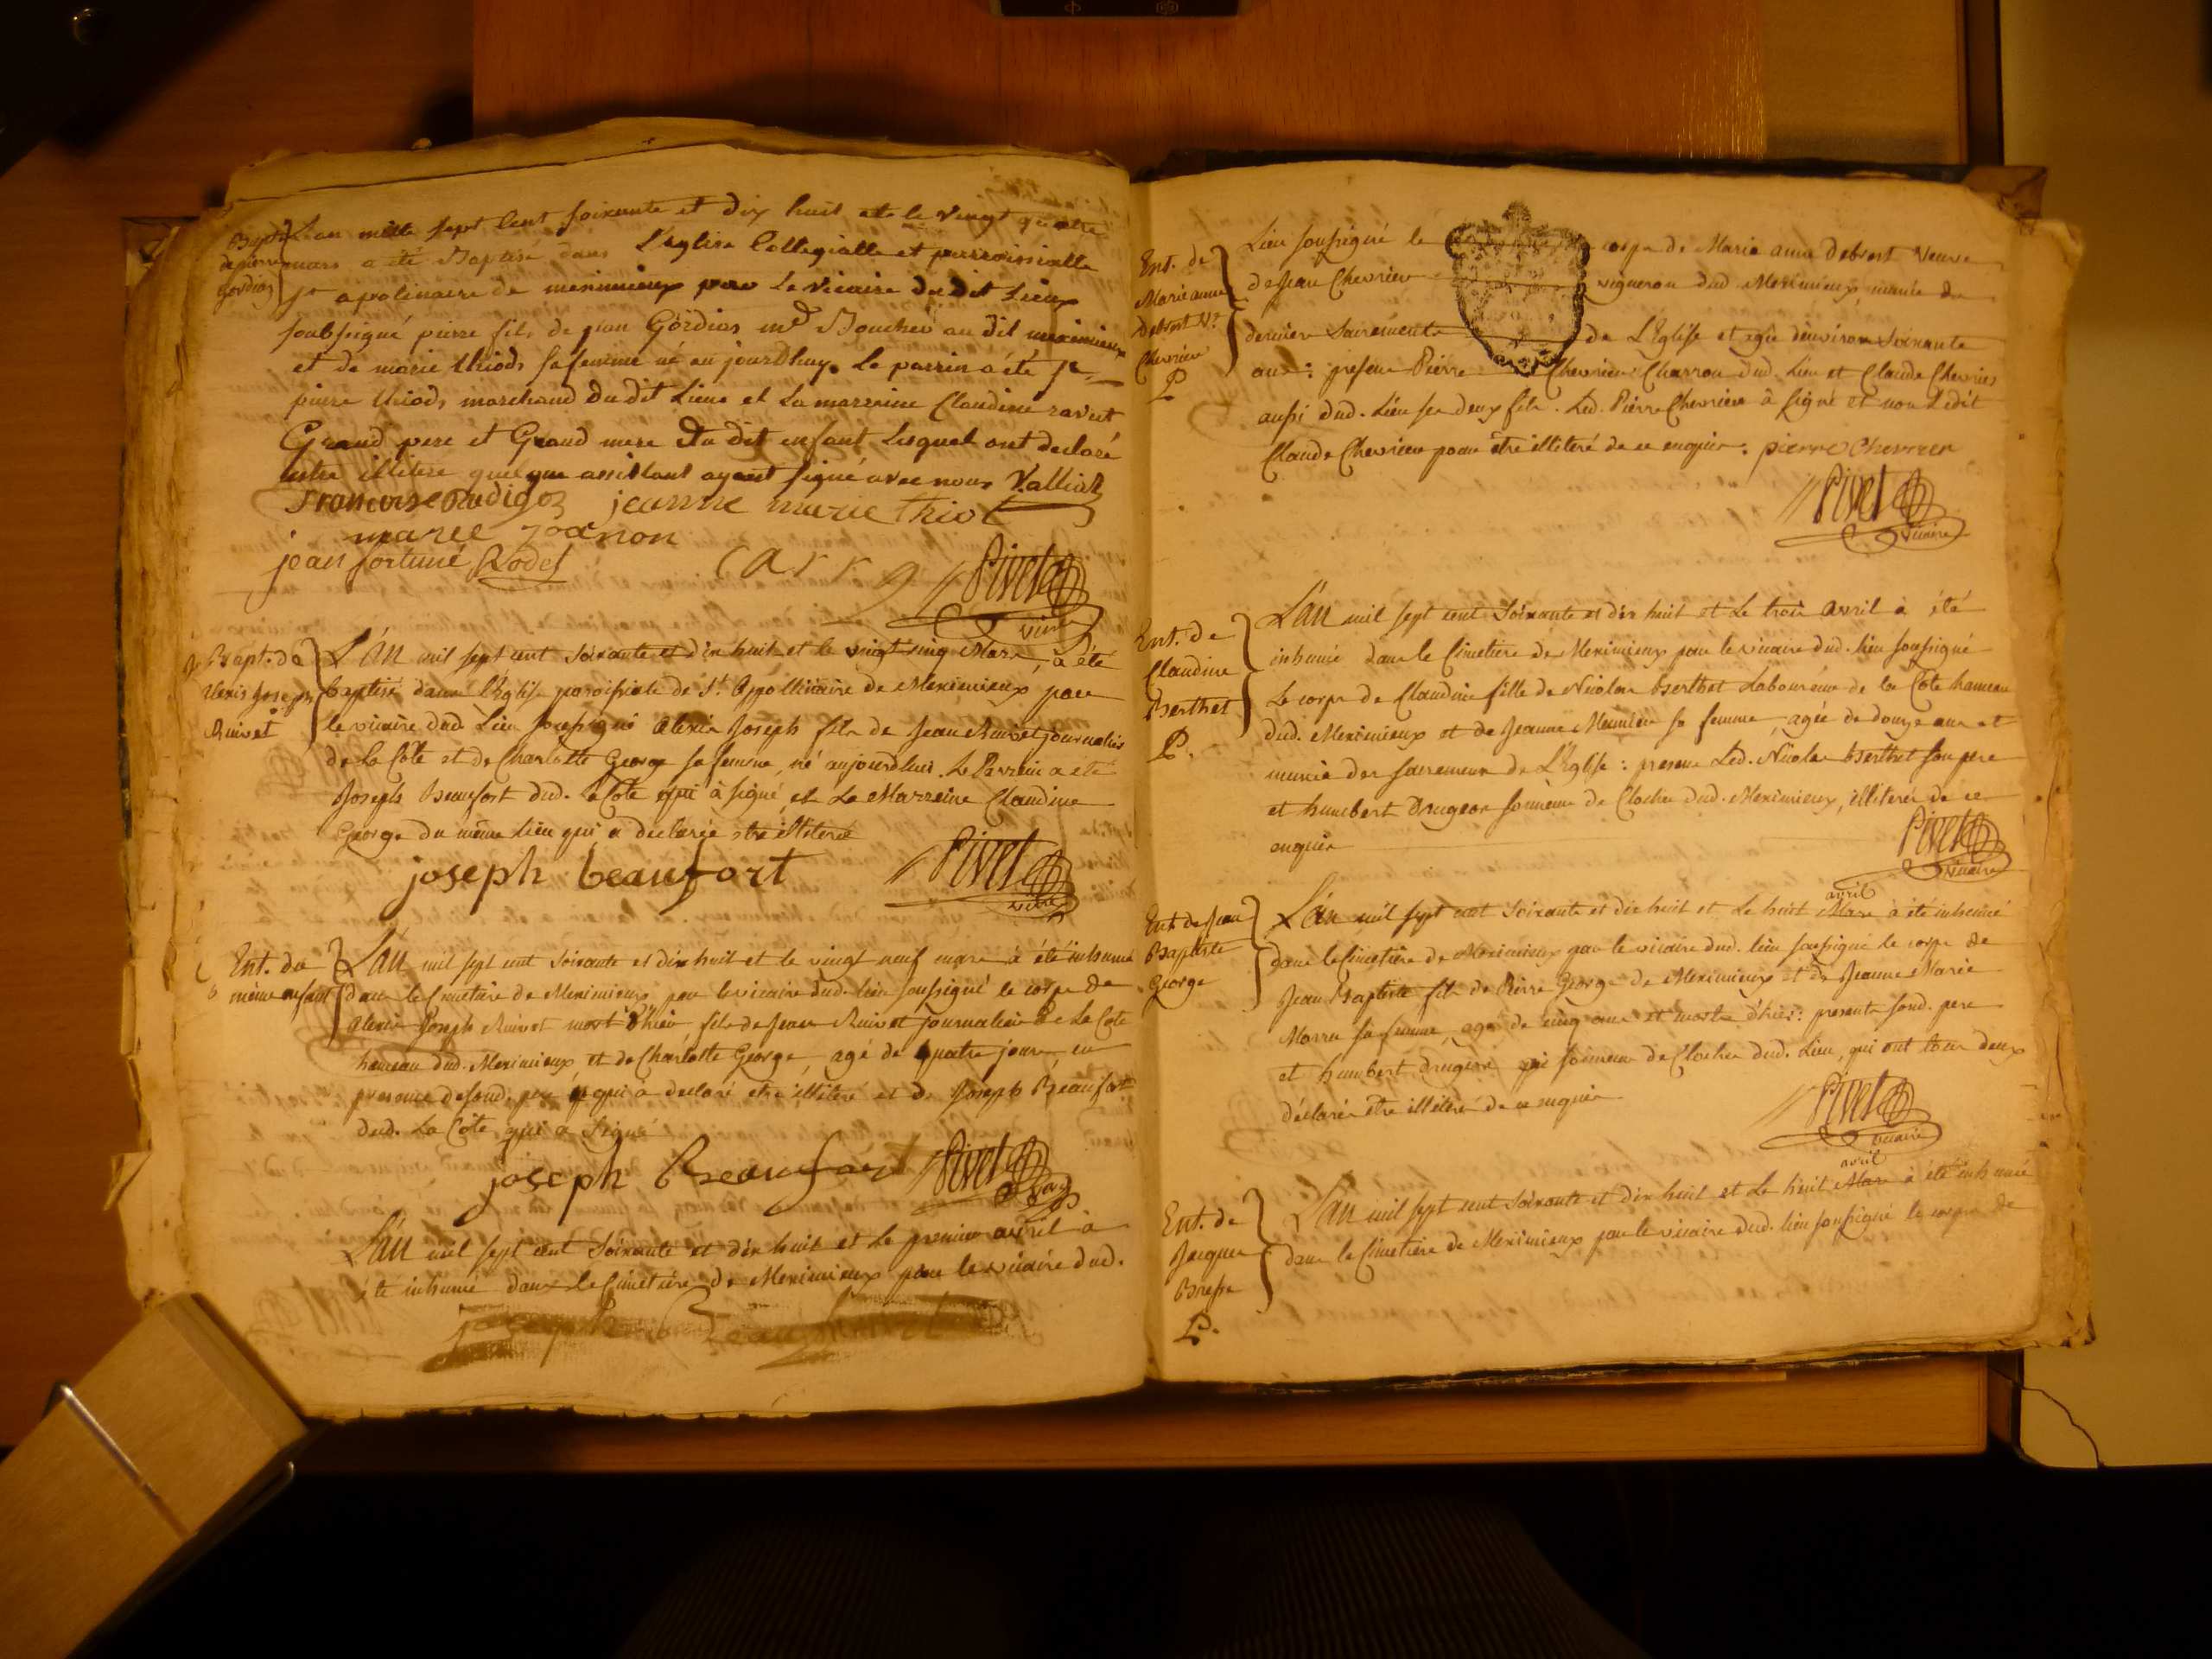 Bapt.
de pierre
gordias
L'an mille sept Cent soixante et dix huit et le vingt quatre
mars a été Baptisé dans L'eglise Collegialle et parroissialle
St apolinaire de meximieux par Le vicaire du dit Lieux
soubsigné pierre fils de jean Gordias md Boucher au dit meximieux
et de marie thiods sa femme né aujourdhuy. Le parrin a été sr
pierre thiods marchand du dit Lieux et La marraine Claudine ravet
Grand pere et Grand mere du dit enfant Lesquel ont declaré
estre illitere quelque assistant ayant signé avec nous Valliat
francoise Rudigoz jeanne marie thiot
marie joanon
jean fortuné Rodet Carr Pivet
vicaire
Bapt. de
Alexis Joseph
Ruivet
L'An mil sept cent soixante et dix huit et le vingt cinq Mars, à été
baptisé dans l'Eglise paroissiale de St. Appollinaire de Meximieux par
le vicaire dud. Lieu soussigné Alexis Joseph fils de Jean Ruivet journalier
de La Côte et de Charlotte George sa femme, né aujourdhui. Le Parrein a été
Joseph Beaufort dud. la Cote qui à signé, et La Marreine Claudine
George du même lieu qui a declarée etre illiterée
joseph beaufort Pivet
vicaire
Ent. du
même enfant
L'An mil sept cent soixante et dix huit et le vingt neuf mars à été inhumé
dans le Cimetiere de Meximieux par le vicaire dud. lieu soussigné le corps de
Alexis Joseph Ruivet mort d'hier fils de Jean Ruivet journalier de La Cote
hameau dud. Meximieux et de Charlotte George, agé de quatre jours, en
presence de sond. pere qui à declaré etre illiteré et de Joseph Beaufort
dud. La Côte qui a signé
joseph Beaufort Pivet
L'An mil sept cent soixante et dix huit et le premier avril à
été inhumé dans le Cimetiere de Meximieux par le vicaire dud.
Ent. de
Marie anne
Debost Ve
Chevrier
P
Lieu soussigné le corps de Marie anne Debost Veuve
de Jean Chevrier vigneron dud. Meximieux, munie des
derniers Sacrements de L'Eglise et agée d'environ soixante
ans: presens Pierre Chevrier Charron dud. Lieu et Claude Chevrier
aussi dud. Lieu ses deux fils. Led. Pierre Chevrier à signé et non Ledit
Claude Chevrier pour être illiteré de ce enquis. pierre Chevrier
Pivet
vicaire
Ent. de
Claudine
Berthet
P.
L'An mil sept cent soixante et dix huit et Le trois Avril à été
inhumée dans le Cimetiere de Meximieux par le vicaire dud. lieu soussigné
Le corps de Claudine fille de Nicolas Berthet Laboureur de la Côte hameau
dud. Meximieux et de Jeanne Meunier sa femme, agée de douze ans et
munie des sacremens de L'Eglise: presens Led. Nicolas Berthet son pere
et humbert Drugeon sonneur de Cloches dud. Meximieux, illiterés de ce
enquis
Pivet
vicaire
Ent. de Jean
Baptiste
George
L'An mil sept cent soixante et dix huit et Le huit Mars avril à été inhumé
dans le Cimetiere de Meximieux par le vicaire dud. lieu soussigné le corps de
Jean Baptiste fils de Pierre George de Meximieux et de Jeanne Marie
sa femme, agé de cinq ans et mort d'hier: presents sond. pere
et humbert drugeon sonneur de Cloches dud. Lieu, qui ont tous deux
déclarés être illiterés de ce enquis
Pivet
vicaire
Ent. de
Jacques
Bresse
P.
L'An mil sept cent soixante et dix huit et Le huit Mars avril à été inhumé
dans le Cimetiere de Meximieux par le vicaire dud. lieu soussigné le corps de